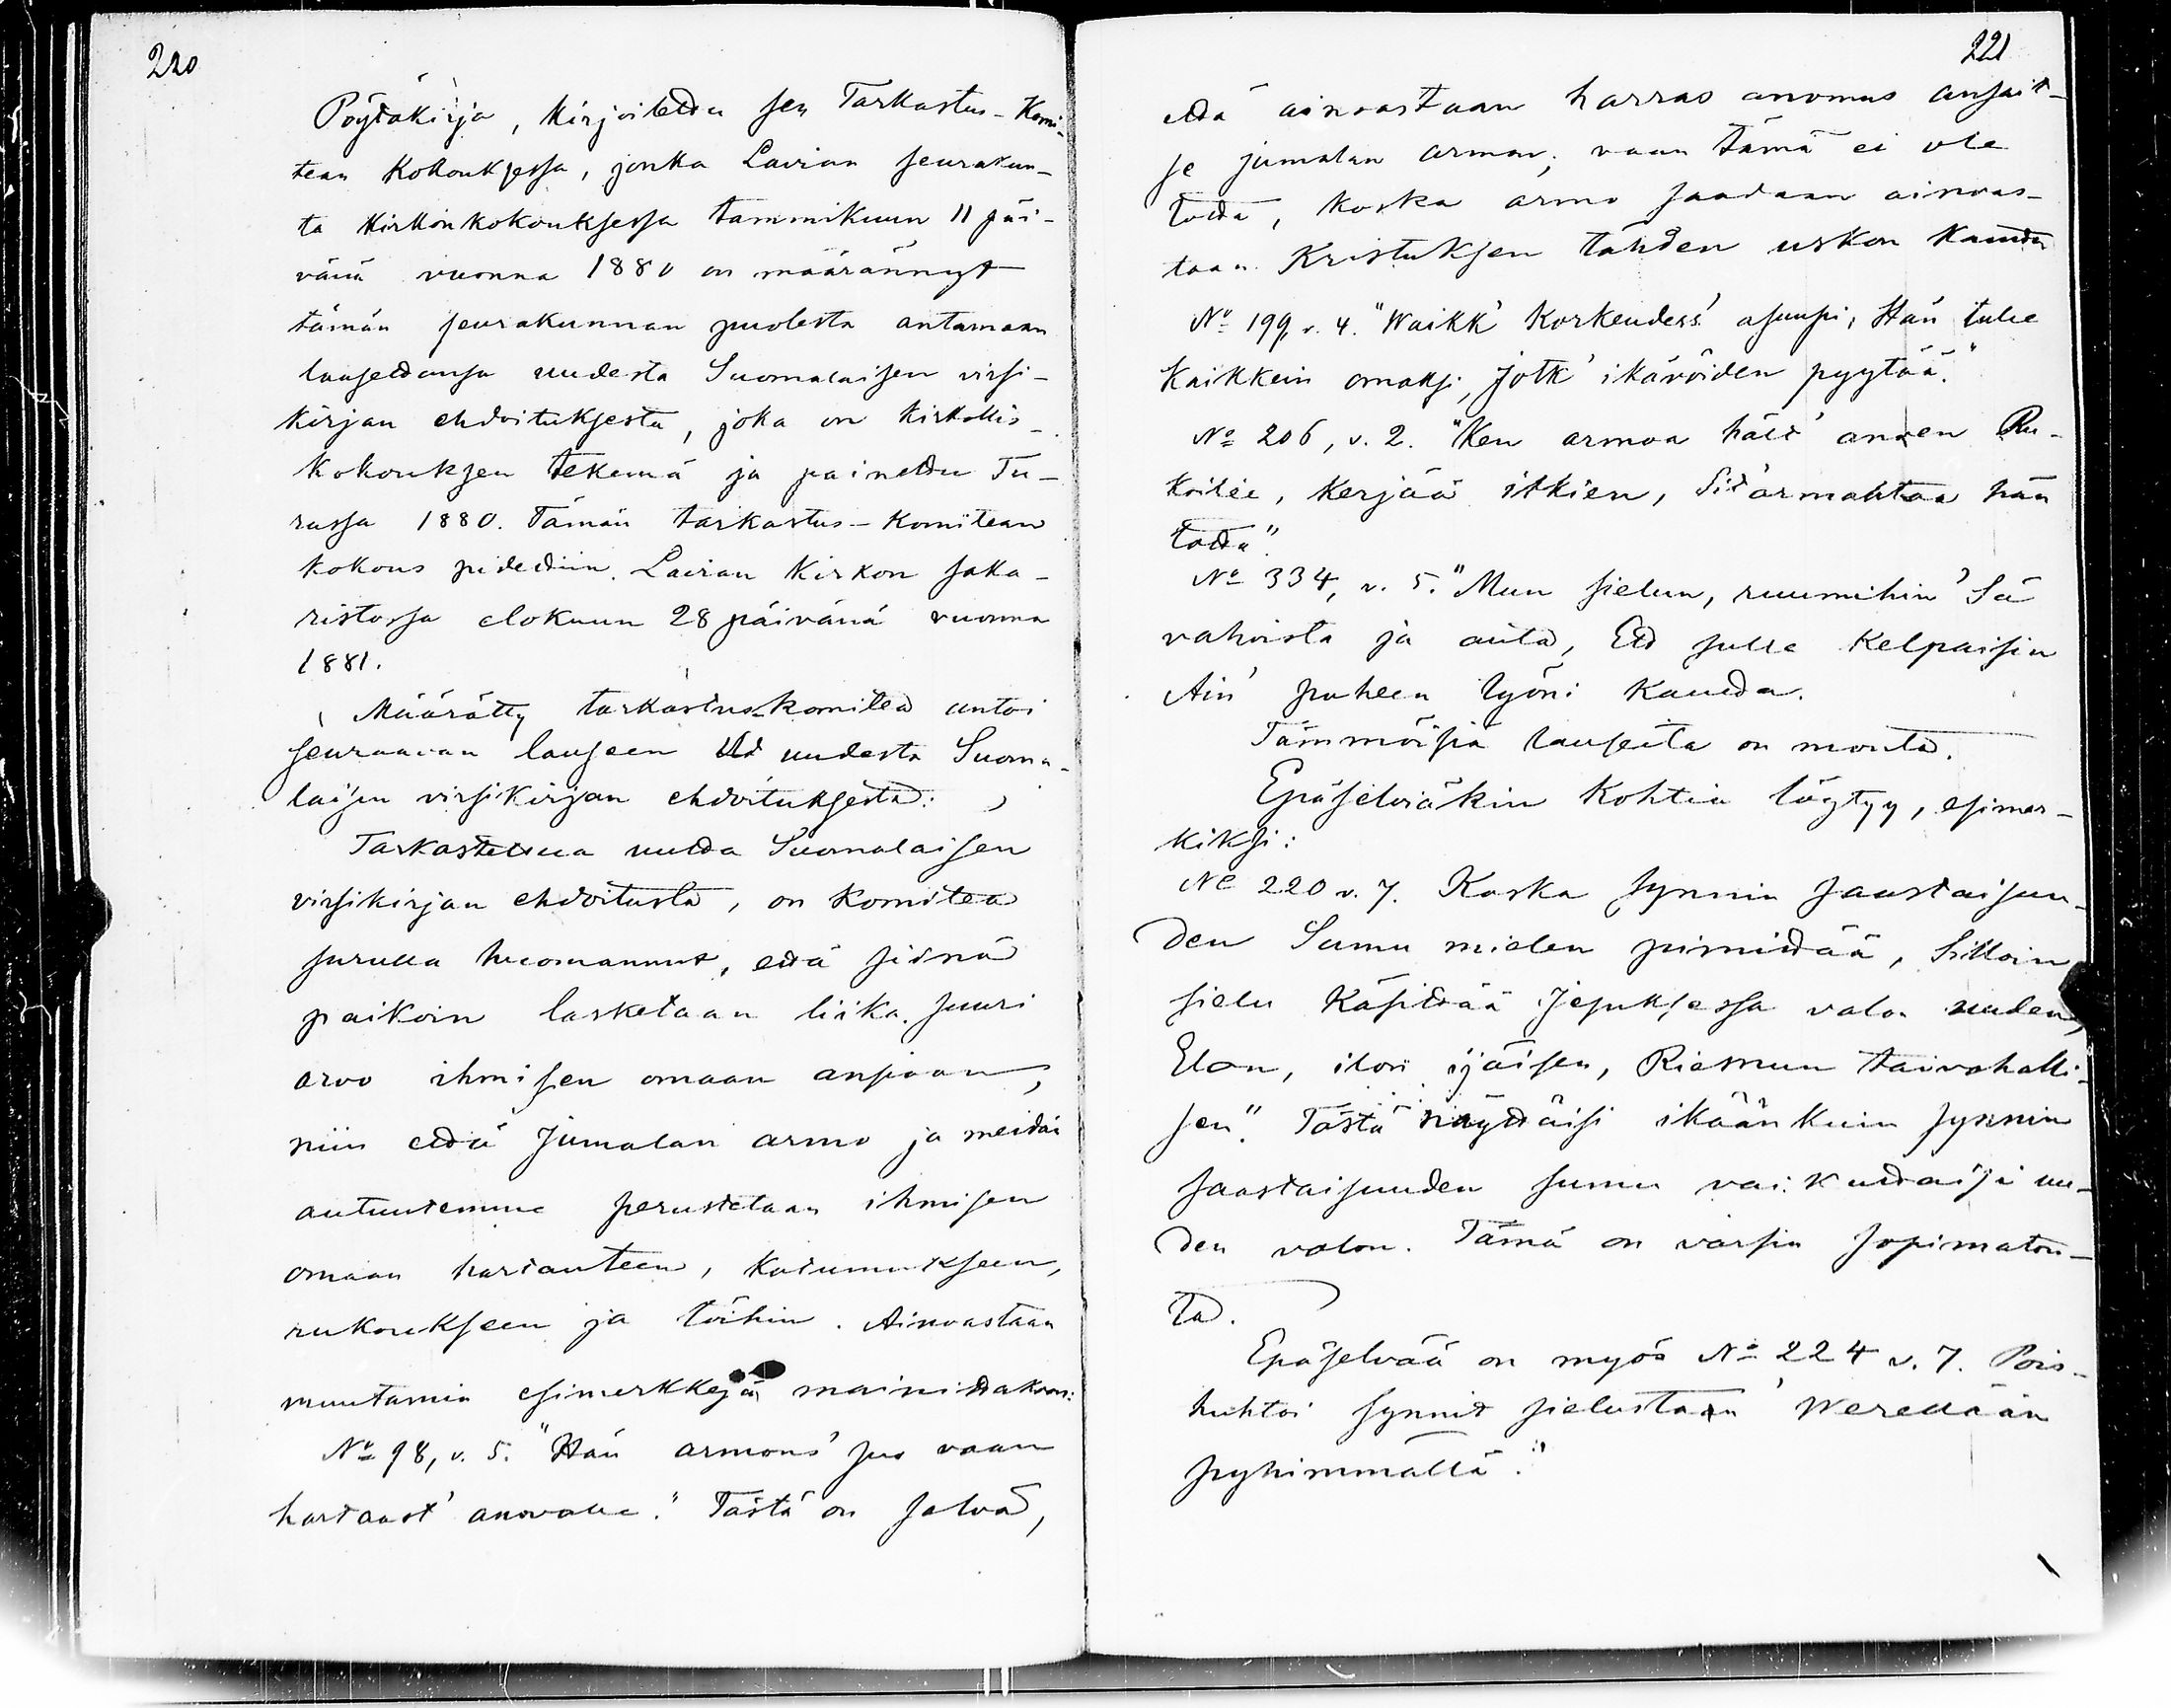 220
Pöytäkirja, kirjoitettu sen Tarkastus-Komi-
tean kokouksessa, jonka Lavian seurakun-
ta kirkonkokouksessa tammikuun 11 päi-
vänä vuonna 1880 on määrännyt
tämän seurakunnan puolesta antamaan
lausettansa uudesta Suomalaisen virsi-
kirjan ehdoituksesta, joka on kirkollis-
kokouksen tekemä ja painettu Tu-
russa 1880. Tämän tarkastus-komitean
kokous pidettiin Lavian kirkon saka-
ristossa elokuun 28 päivänä vuonna
1881.
Määrätty tarkastus-komitea antoi
seuraavan lauseen uudesta Suoma-
laisen virsikirjan ehdoituksesta:
Tarkastettua uutta Suomalaisen
virsikirjan ehdoitusta, on komitea
surulla huomannut, että siinä
paikoin lasketaan liika suuri
arvo ihmisen omaan ansioon,
niin että Jumalan armo ja meidän
autuutemme perustetaan ihmisen
omaan hartauteen, katumukseen,
rukoukseen ja töihin. Ainoastaan
muutamia esimerkkejä mainittakoon:
No 98, v. 5. "Hän armons' suo vaan
hartaast' anovalle." Tästä on selvä,
221
että ainoastaan harras anomus ansait-
se jumalan armon; vaan tämä ei ole
totta, koska armo saadaan ainoas-
taan Kristuksen tähden uskon kautta
No 199, v. 4. "Waikk' korkeudess' asuupi, Hän tulee
kaikkein omaksi, Jotk' ikävöiden pyytää."
No 206, v. 2. "Ken armoa hält' anoen Ru-
koilee, kerjää itkien, Sit' armahtaa hän
totta".
No 334, v. 5. "Mun sielun, ruumihin' Sä
vahvista ja auta, Ett sulle kelpaisin
Ain' puheen työni kautta.
Tämmöisiä lauseita on monta.
Epäselviäkin kohtia löytyy, esimer-
kiksi:
No 220 v. 7. Koska synnin saastaisuu-
den Sumu mielen pimittää, Silloin
sielu käsittää Jesuksessa valon uuden,
Elon, ilon ijäisen, Riemun taivahalli-
sen". Tästä näyttäisi ikäänkuin synnin
saastaisuuden sumu vaikuttaisi uu-
den valon. Tämä on varsin sopimaton-
ta.
Epäselvää on myös No 224 v. 7. Pois
huhtoi synnit sielustaan Werellään
pyhimmällä."